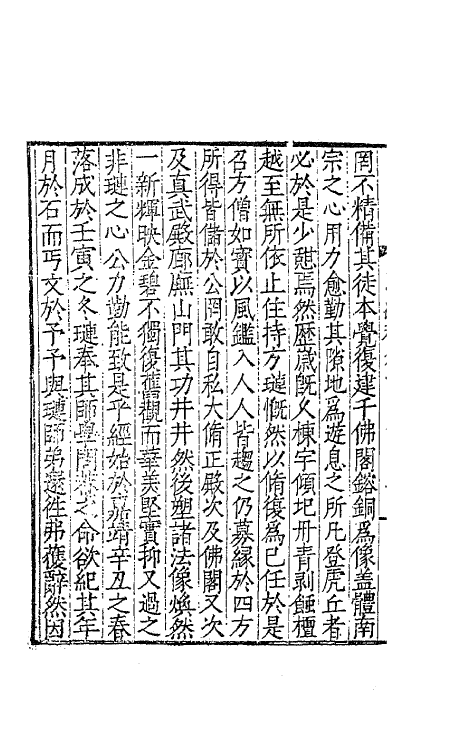 罔不精備其徒本覺復建千佛閣鎔銅爲像盖體南
宗之心用力愈勤其隙地爲遊息之所凡登虎丘者
必於是少憇焉然歷歲旣久棟宇傾圯丹青剥蝕檀
越至無所依止住持方璉慨然以脩復爲已任於是
召方僧如寳以風鑑入人人皆趨之仍募緣於四方
所得皆儲於公罔敢自私大脩正殿次及佛閣又次
及真武殿廊廡山門其功井井然後塑諸法像煥然
一新輝映金碧不獨復舊觀而華美堅實抑又過之
非璉之心公力勤能致是乎經始於嘉靖辛丑之春
落成於壬寅之冬璉奉其師學誾㳟之命欲紀其年
月於石而丐文於予予與璉師弟還徃弗獲辭然因